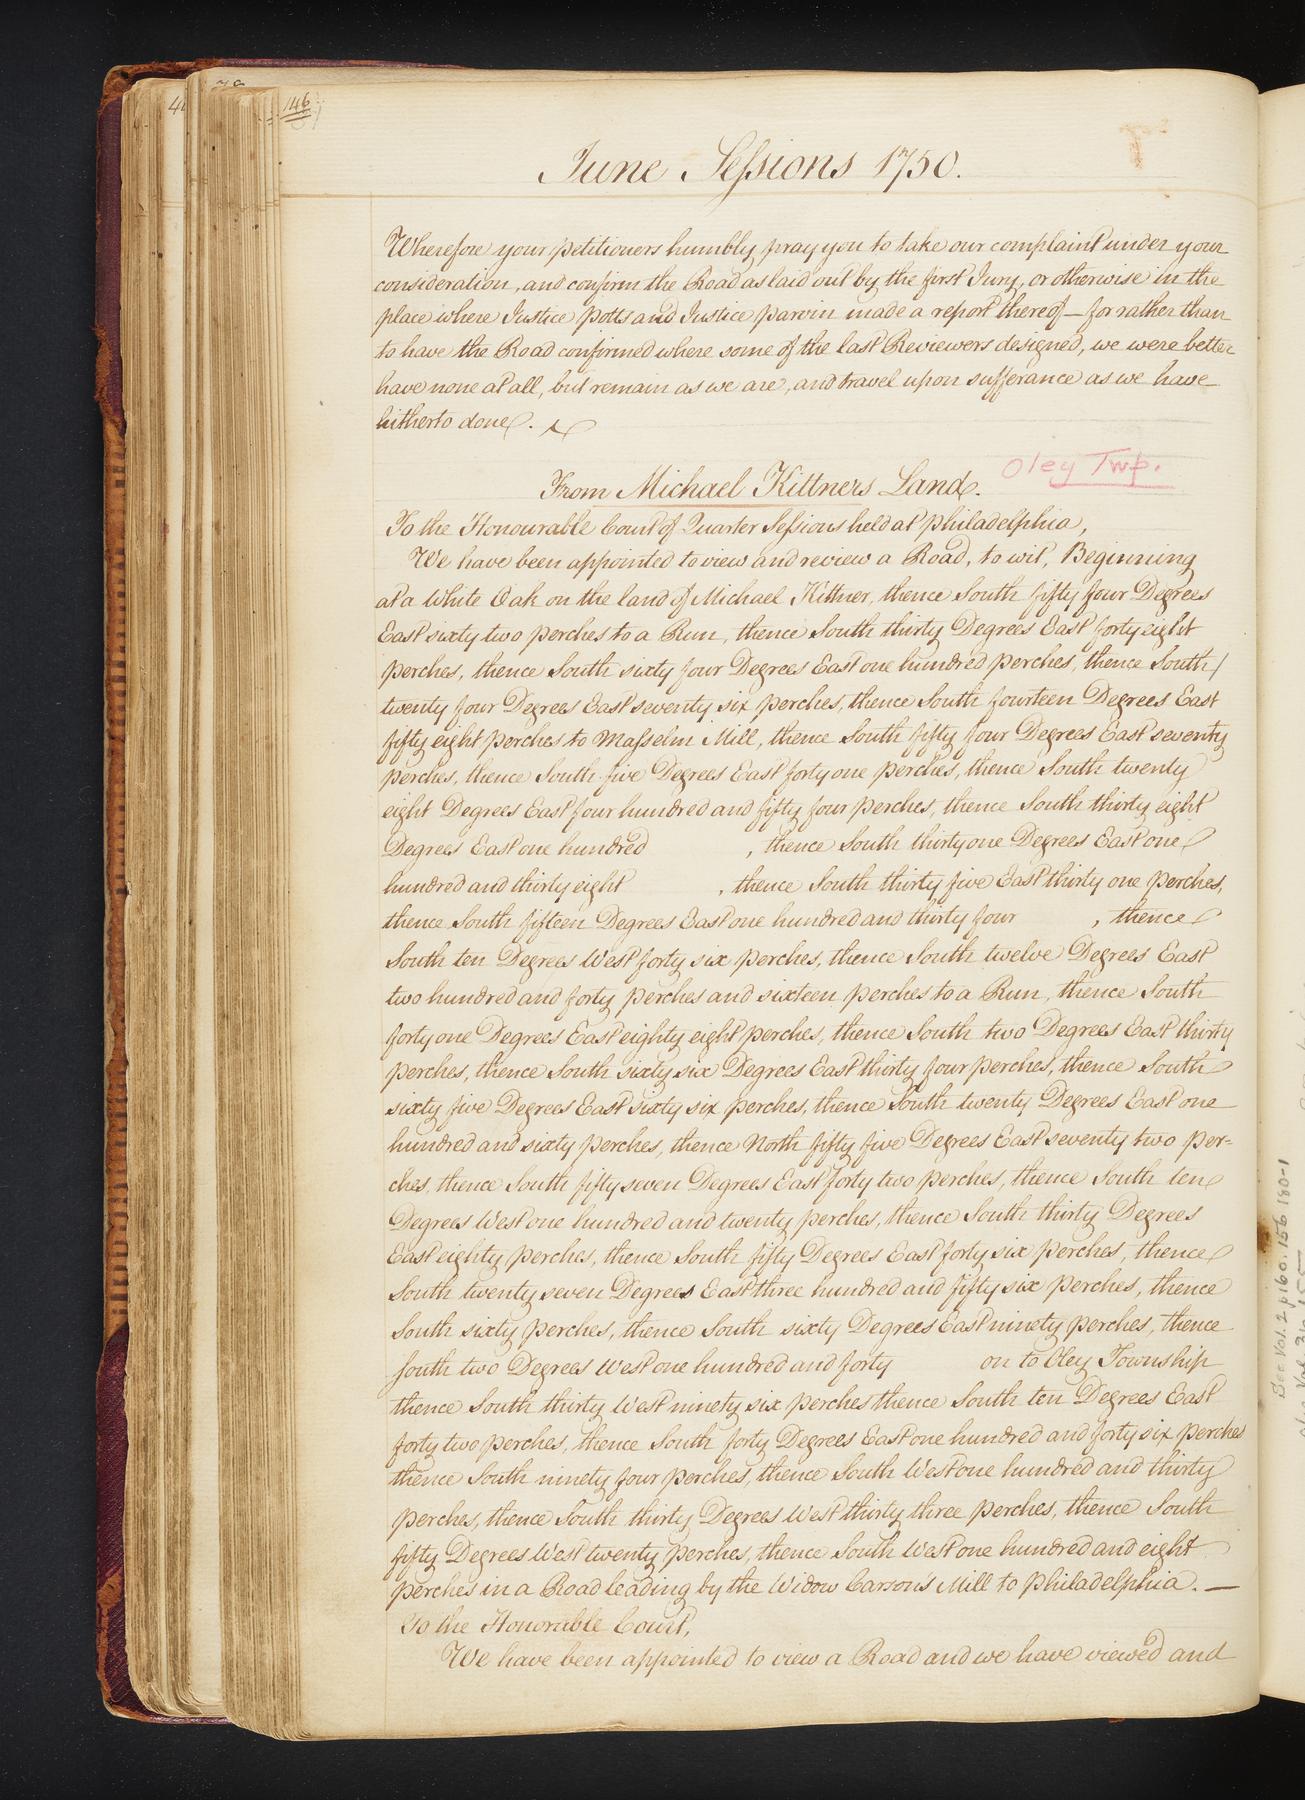 146
June Sessions 1750.
Wherefore your petitioners humbly pray you to take our complaint under your
consideration, and confirm the Road as laid out by the first Jury, or otherwise in the
place where Justice Potts and Justice parvin made a report thereof — for rather than
to have the Road confirmed where some of the last Reviewers designed, we were better
have none at all, but remain as we are, and travel upon sufferance as we have
hitherto done.
Oley Twp.
From Michael Kittners Land.
To the Honourable Court of Quarter Sessions held at Philadelphia,
We have been appointed to view and review a Road, to wit, Beginning
at a White Oak on the land of Michael Kittner, thence South fifty four Degrees
East sixty two perches to a Run, thence South thirty Degrees East forty eight
perches, thence South sixty four Degrees East one hundred perches, thence South
twenty four Degrees East seventy six perches, thence South fourteen Degrees East
fifty eight perches to Masselm Mill, thence South fifty four Degrees East seventy
perches, thence South five Degrees East forty one perches, thence South twenty
eight Degrees East four hundred and fifty four perches, thence South thirty eight
Degrees East one hundred , thence South thirty one Degrees East one
hundred and thirty eight , thence South thirty five East thirty one perches,
thence South fifteen Degrees East one hundred and thirty four , thence
South ten Degrees West forty six perches, thence South twelve Degrees East
two hundred and forty perches and sixteen perches to a Run, thence South
forty one Degrees East eighty eight perches, thence South two Degrees East thirty
perches, thence South sixty six Degrees East thirty four perches, thence South
sixty five Degrees East sixty six perches, thence South twenty Degrees East one
hundred and sixty perches, thence North fifty five Degrees East seventy two per=
ches, thence South fifty seven Degrees East forty two perches, thence South ten
Degrees West one hundred and twenty perches, thence South thirty Degrees
East eighty perches, thence South fifty Degrees East forty six perches, thence
South twenty seven Degrees East three hundred and fifty six perches, thence
South sixty perches, thence South sixty Degrees East ninety perches, thence
South two Degrees West one hundred and forty on to Oley Township
thence South thirty West ninety six perches thence South ten Degrees East
forty two perches, thence South forty Degrees East one hundred and forty six perches
thence South ninety four perches, thence South West one hundred and thirty
perches, thence South thirty Degrees West thirty three perches, thence South
fifty Degrees West twenty perches, thence South West one hundred and eight
perches in a Road leading by the Widow Carson's Mill to Philadelphia. —
To the Honorable Court,
We have been appointed to view a Road and we have viewed and
See Vol. 2 p 160. 156 180-1